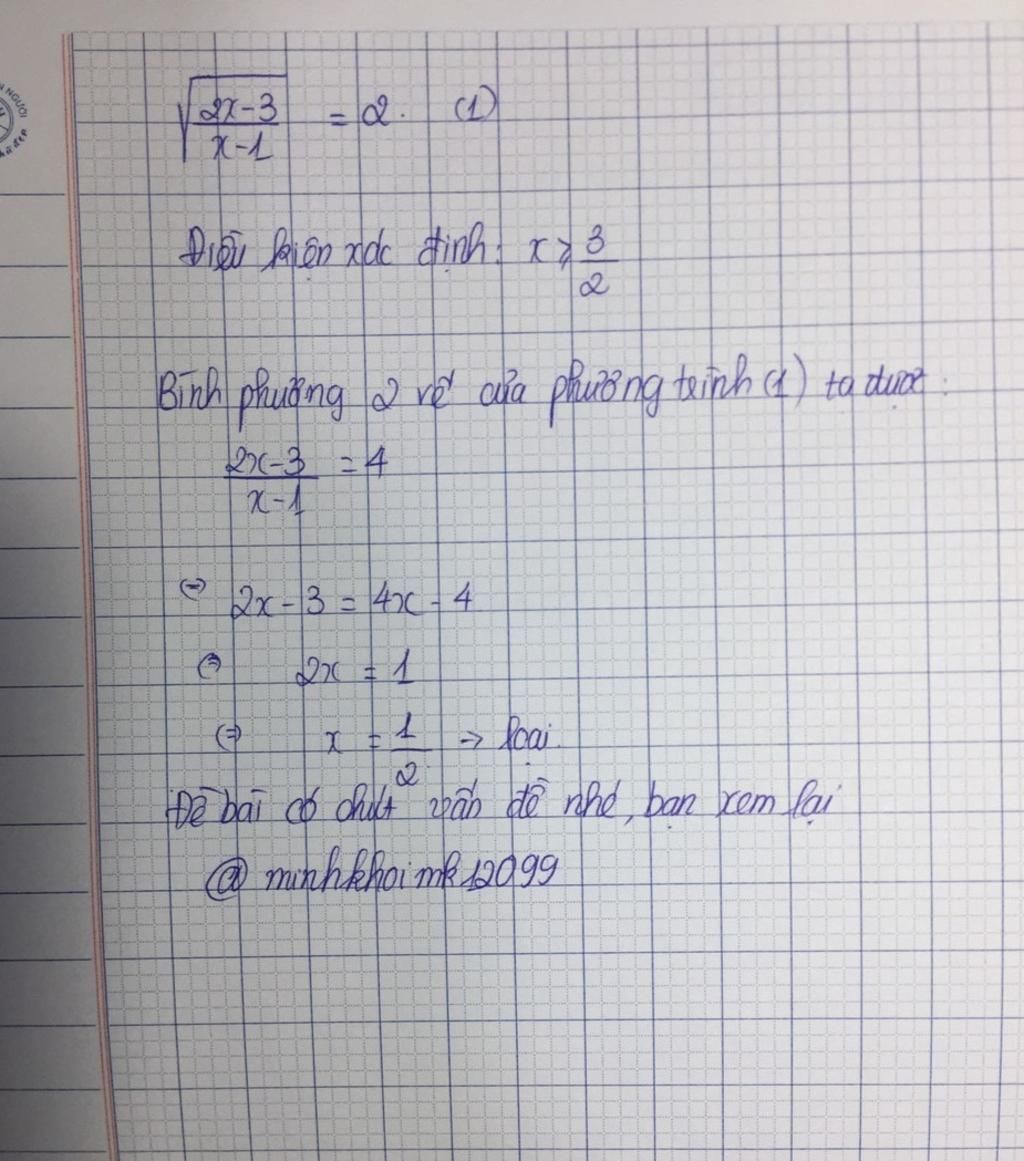 N NGƯỜI
√((2x-3)/(x-1)) = 2. (1)
Điều kiện xác định: x ⩾ 3/2
Bình phương 2 vế của phương trình (1) ta được:
(2x-3)/(x-1) = 4
⇔ 2x - 3 = 4x - 4
⇔ 2x = 1
⇔ x = 1/2 → loại.
Đề bài có chút vấn đề nhé, bạn xem lại
@ minhkhoimk12099